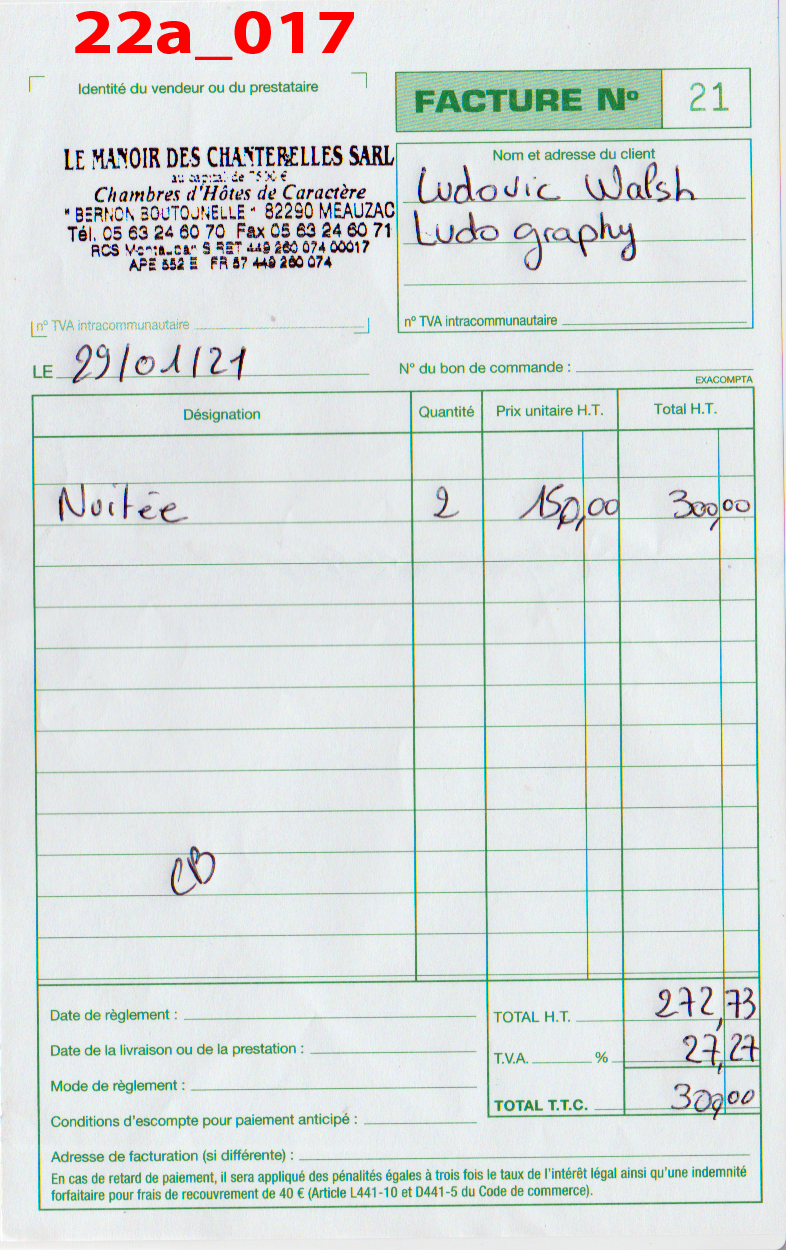 22a_017
Identité du vendeur ou du prestataire
FACTURE Nº 21
LE MANOIR DES CHANTERELLES SARL
au capital de 7500 €
Chambres d'Hôtes de Caractère
" BERNON BOUTOURNELLE " 82290 MEAUZAC
Tél. 05 63 24 60 70 Fax 05 63 24 60 71
RCS Montauban SIRET 449 260 074 00017
APE 552 E FR 87 449 260 074
Nom et adresse du client
Ludovic Walsh
Ludo graphy
nº TVA intracommunautaire
nº TVA intracommunautaire
LE 29/01/21
Nº du bon de commande :
EXACOMPTA
Désignation Quantité Prix unitaire H.T. Total H.T.
Nuitée 2 150,00 300,00
CB
Date de règlement :
Date de la livraison ou de la prestation :
Mode de règlement :
Conditions d'escompte pour paiement anticipé :
TOTAL H.T. 272,73
T.V.A. % 27,27
TOTAL T.T.C. 300,00
Adresse de facturation (si différente) :
En cas de retard de paiement, il sera appliqué des pénalités égales à trois fois le taux de l'intérêt légal ainsi qu'une indemnité
forfaitaire pour frais de recouvrement de 40 € (Article L441-10 et D441-5 du Code de commerce).